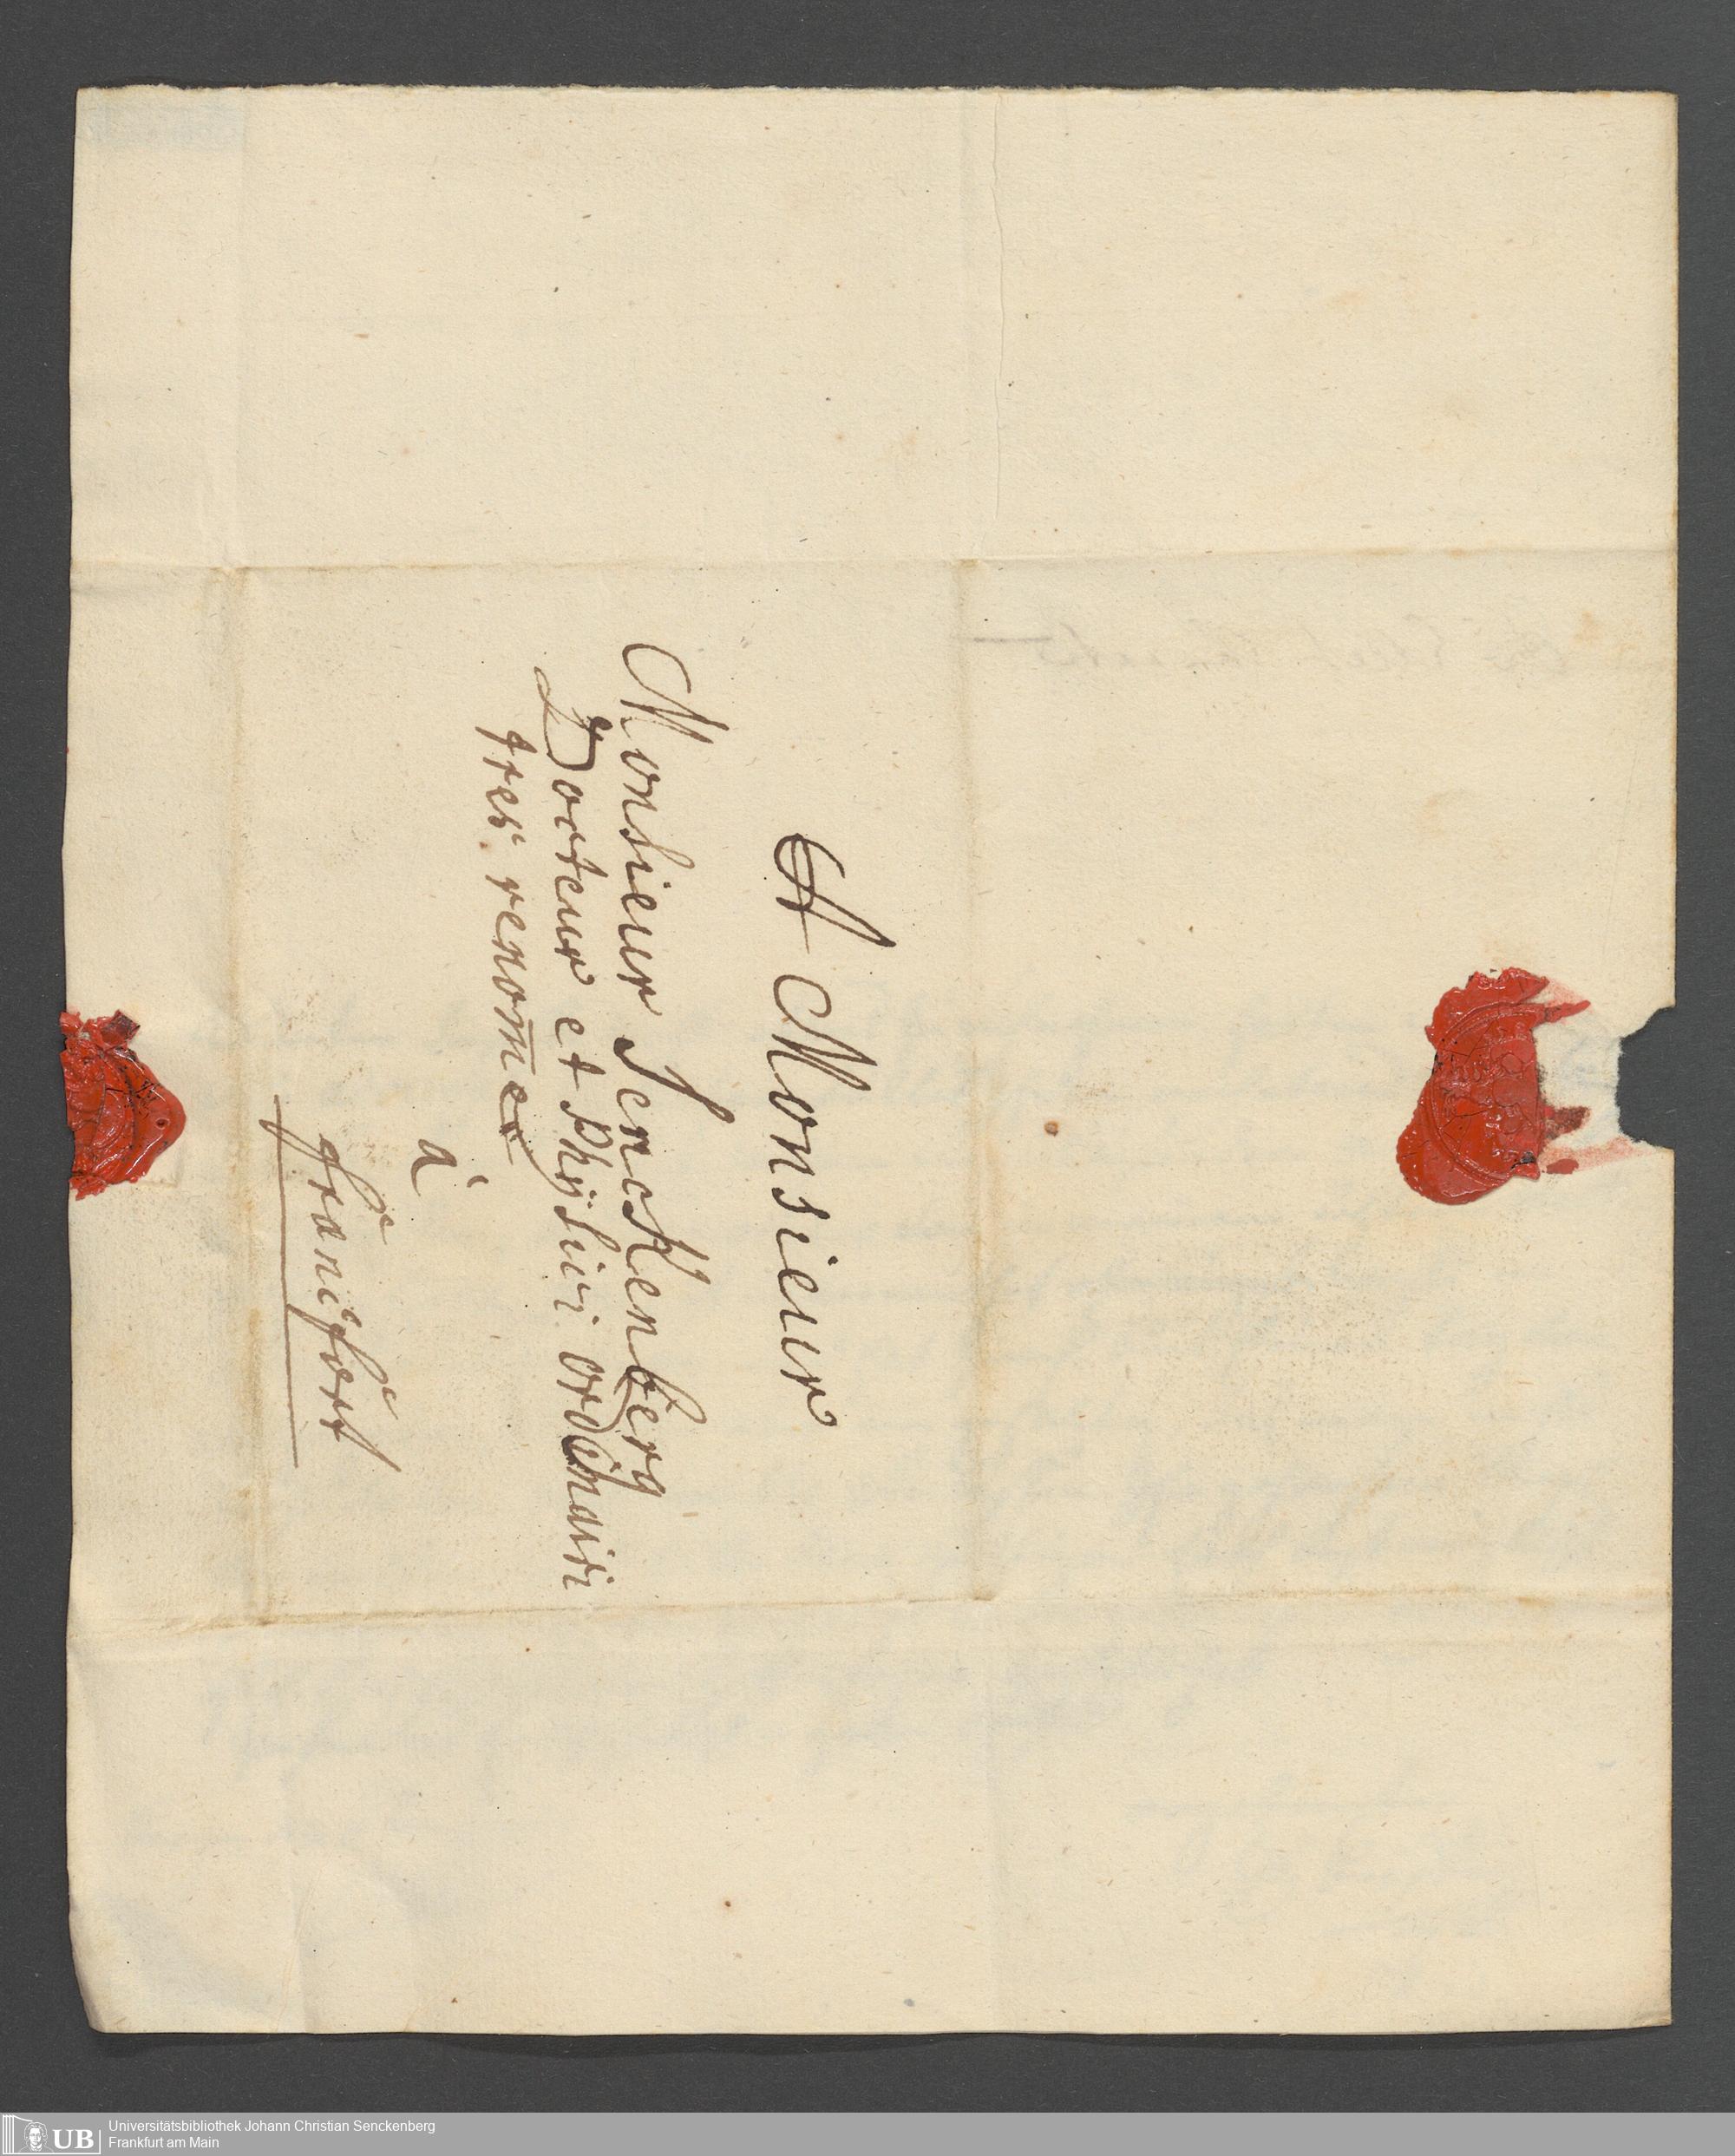 A Monsieur
Monsieur Senckenberg
Docteur et Physici ordinairi
tres renom̄e
à
francfort
UB
Universitätsbibliothek Johann Christian Senckenberg
Frankfurt am Main